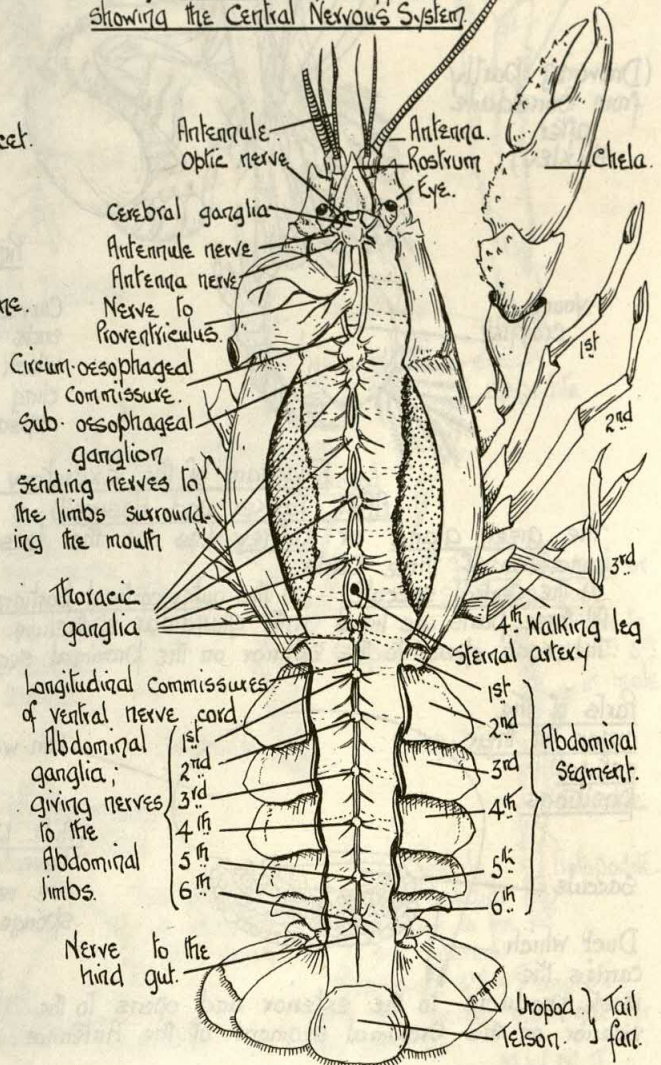 showing the Central Nervous System.
Antennule.
Optic nerve
Cerebral ganglia
Antennule nerve
Antenna nerve
Nerve to
Proventriculus.
Circum-oesophageal
Commissure.
Sub-oesophageal
ganglion
sending nerves to
the limbs surround-
ing the mouth
Thoracic
ganglia
Longitudinal Commissures
of ventral nerve cord.
Abdominal
ganglia;
giving nerves
to the
Abdominal
limbs.
1st
2nd
3rd
4th
5th
6th
Nerve to the
hind gut.
Antenna.
Rostrum
Eye.
Chela.
1st
2nd
3rd
4th Walking leg
Sternal artery
1st
2nd
3rd
4th
5th
6th
Abdominal
Segment.
Uropod.
Telson.
Tail
fan.